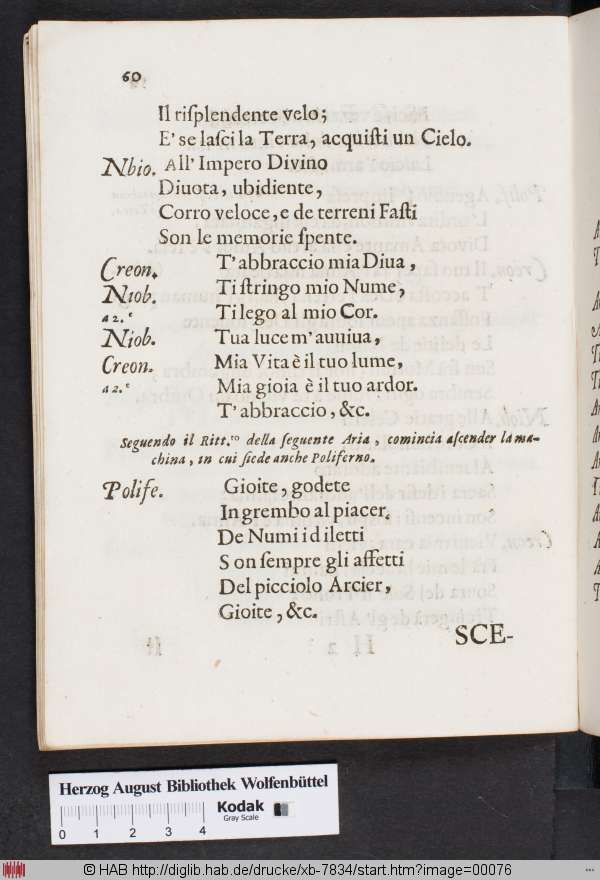 60
Il riſplendente velo;
E' se laſci la Terra, acquiſti un Cielo.
Nbio. All' Impero Divino
Diuota, ubidiente,
Corro veloce, e de terreni Faſti
Son le memorie ſpente.
Creon. T' abbraccio mia Diua,
Niob. Ti ſtringo mio Nume,
a 2.e Ti lego al mio Cor.
Niob. Tua luce m' auuiua,
Creon. Mia Vita è il tuo lume,
a 2.e Mia gioia è il tuo ardor.
T' abbraccio, &c.
Seguendo il Ritt.ro della ſeguente Aria, comincia aſcender la ma-
china, in cui ſiede anche Poliferno.
Polife. Gioite, godete
In grembo al piacer.
De Numi i d iletti
S on ſempre gli affetti
Del picciolo Arcier,
Gioite, &c.
SCE-
Herzog August Bibliothek Wolfenbüttel
0 1 2 3 4
Kodak
Gray Scale
© HAB http://diglib.hab.de/drucke/xb-7834/start.htm?image=00076